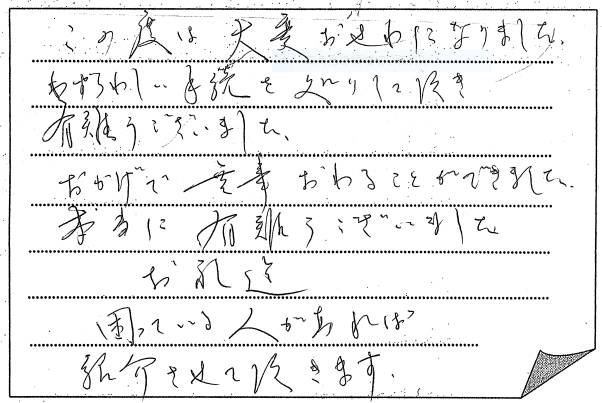 この度は大変お世わになりました。
わずらわしい手続を して頂き
有難うございました。
おかげで無事おわることができました。
本当に有難うございました
お礼迄
困っている人があれば
紹介させて頂きます.